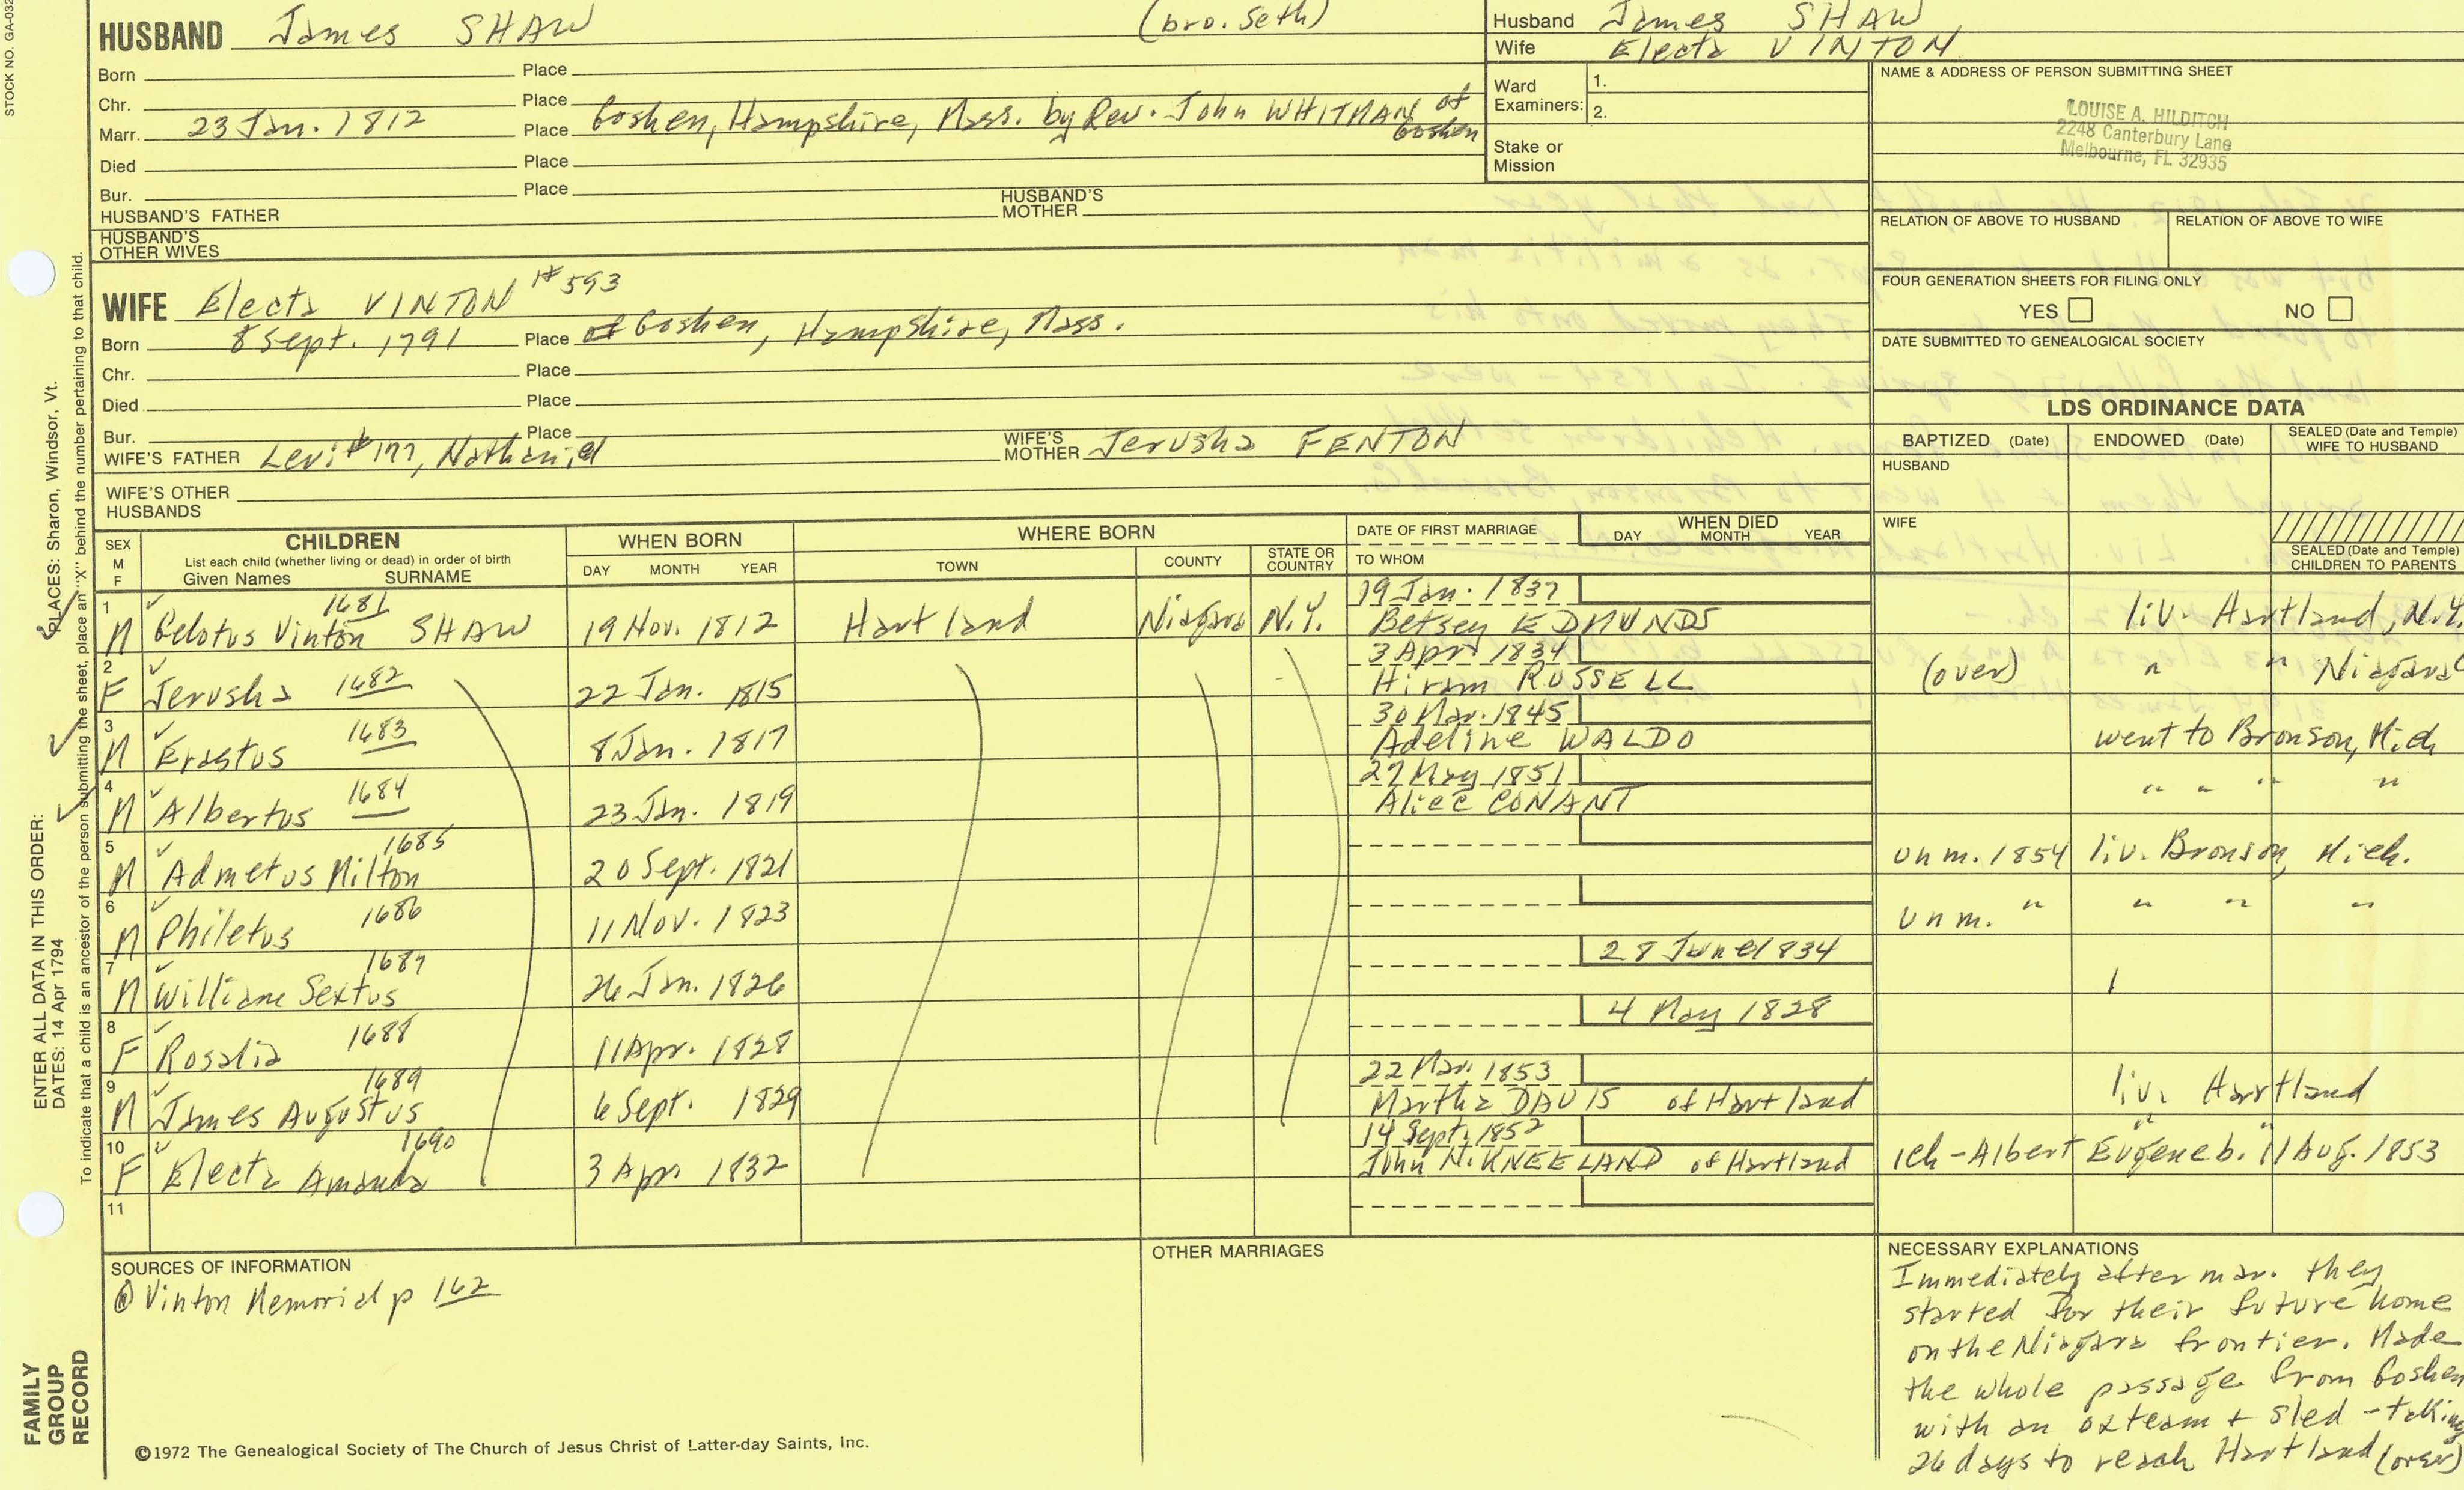 STOCK NO. GA-032
HUSBAND James SHAW (bro. Seth)
Born Place
Chr. Place
Marr. 23 Jan. 1812 Place Goshen, Hampshire, Mass. by Rev. John WHITMAN of Goshen
Died Place
Bur. Place
HUSBAND'S FATHER HUSBAND'S MOTHER
HUSBAND'S OTHER WIVES
WIFE Electa VINTON #593
Born 8 Sept. 1791 Place of Goshen, Hampshire, Mass.
Chr. Place
Died Place
Bur. Place
WIFE'S FATHER Levi #177, Nathaniel WIFE'S MOTHER Jerusha FENTON
WIFE'S OTHER HUSBANDS
Husband James SHAW
Wife Electa VINTON
Ward Examiners: 1.
2.
Stake or Mission
NAME & ADDRESS OF PERSON SUBMITTING SHEET
LOUISE A. HILDITCH
2248 Canterbury Lane
Melbourne, FL 32935
RELATION OF ABOVE TO HUSBAND RELATION OF ABOVE TO WIFE
FOUR GENERATION SHEETS FOR FILING ONLY
YES NO
DATE SUBMITTED TO GENEALOGICAL SOCIETY
LDS ORDINANCE DATA
BAPTIZED (Date) ENDOWED (Date) SEALED (Date and Temple) WIFE TO HUSBAND
HUSBAND
WIFE
SEALED (Date and Temple) CHILDREN TO PARENTS
SEX M F CHILDREN List each child (whether living or dead) in order of birth Given Names SURNAME
WHEN BORN DAY MONTH YEAR
WHERE BORN TOWN COUNTY STATE OR COUNTRY
DATE OF FIRST MARRIAGE TO WHOM
WHEN DIED DAY MONTH YEAR
1 M Celotus Vinton SHAW 1681 19 Nov. 1812 Hartland Niagara N.Y. 19 Jan. 1837 Betsey EDMUNDS liv. Hartland, N.Y.
2 F Jerusha 1682 22 Jan. 1815 3 Apr 1834 Hiram RUSSELL (over) " " Niagara
3 M Erastus 1683 8 Jan. 1817 30 Mar. 1845 Adeline WALDO went to Bronson, Mich
4 M Albertus 1684 23 Jan. 1819 27 May 1851 Alice CONANT " " " "
5 M Admetus Milton 1685 20 Sept. 1821 unm. 1854 liv. Bronson, Mich.
6 M Philetus 1686 11 Nov. 1823 unm. " " " "
7 M William Sextus 1687 26 Jan. 1826 28 June 1834
8 F Rosalia 1688 11 Apr. 1828 4 May 1828
9 M James Augustus 1689 6 Sept. 1829 22 Mar. 1853 Martha DAVIS of Hartland liv. Hartland
10 F Electa Amanda 1690 3 Apr. 1832 14 Sept. 1852 John N. KNEELAND of Hartland " " 1ch - Albert Eugene b. 11 Aug. 1853
11
SOURCES OF INFORMATION
@ Vinton Memorial p 162
OTHER MARRIAGES
NECESSARY EXPLANATIONS
Immediately after mar. they
started for their future home
on the Niagara frontier. Made
the whole passage from Goshen
with an ox team + sled - taking
26 days to reach Hartland (over)
©1972 The Genealogical Society of The Church of Jesus Christ of Latter-day Saints, Inc.
FAMILY GROUP RECORD
ENTER ALL DATA IN THIS ORDER:
DATES: 14 Apr 1794
PLACES: Sharon, Windsor, Vt.
To indicate that a child is an ancestor of the person submitting the sheet, place an "X" behind the number pertaining to that child.